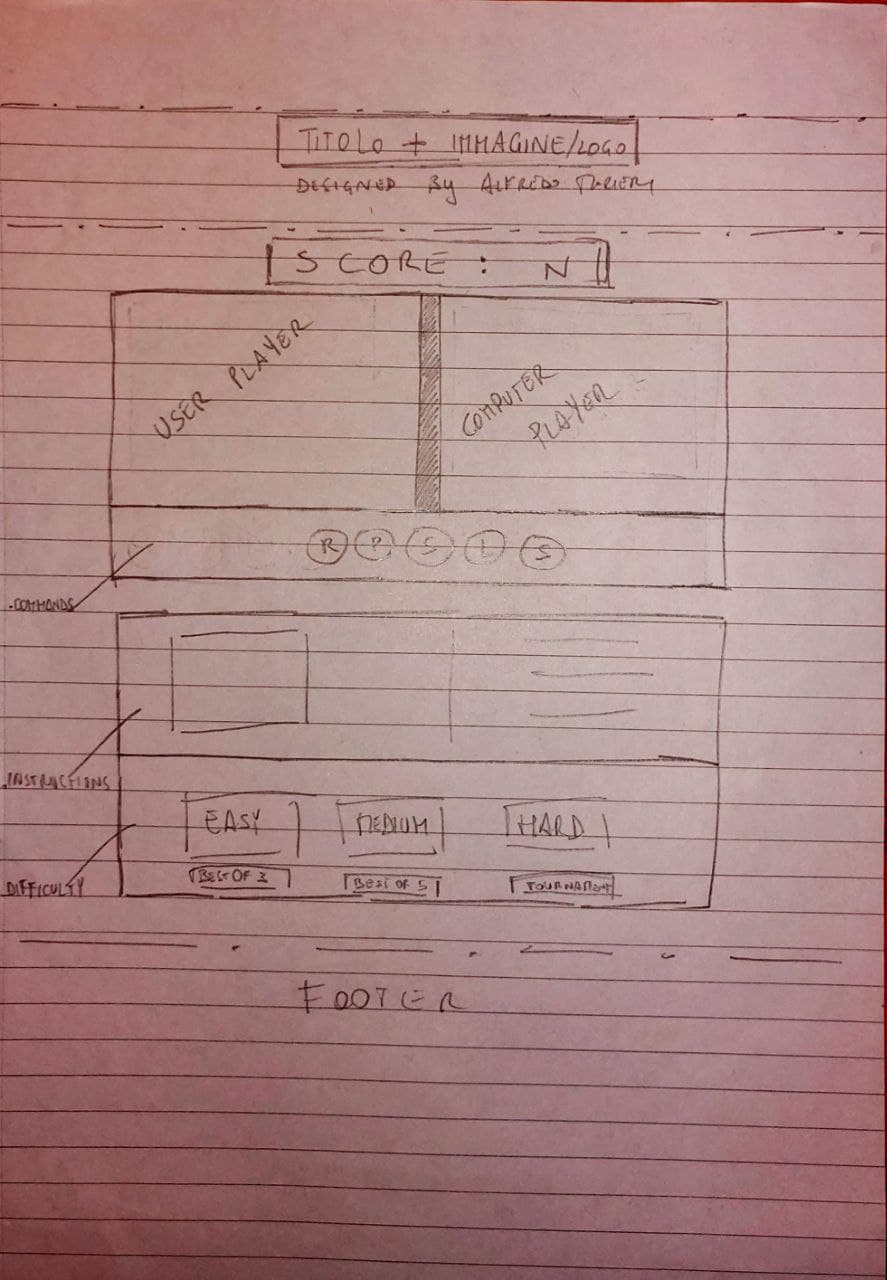 TITOLO + IMMAGINE/LOGO
DESIGNED By ALFREDO
SCORE: N
USER PLAYER
COMPUTER
PLAYER
R P S L S
.COMMANDS
.INSTRUCTIONS
EASY MEDIUM HARD
DIFFICULTY
BEST OF 3 BEST OF 5 TOURNAMENT
FOOTER